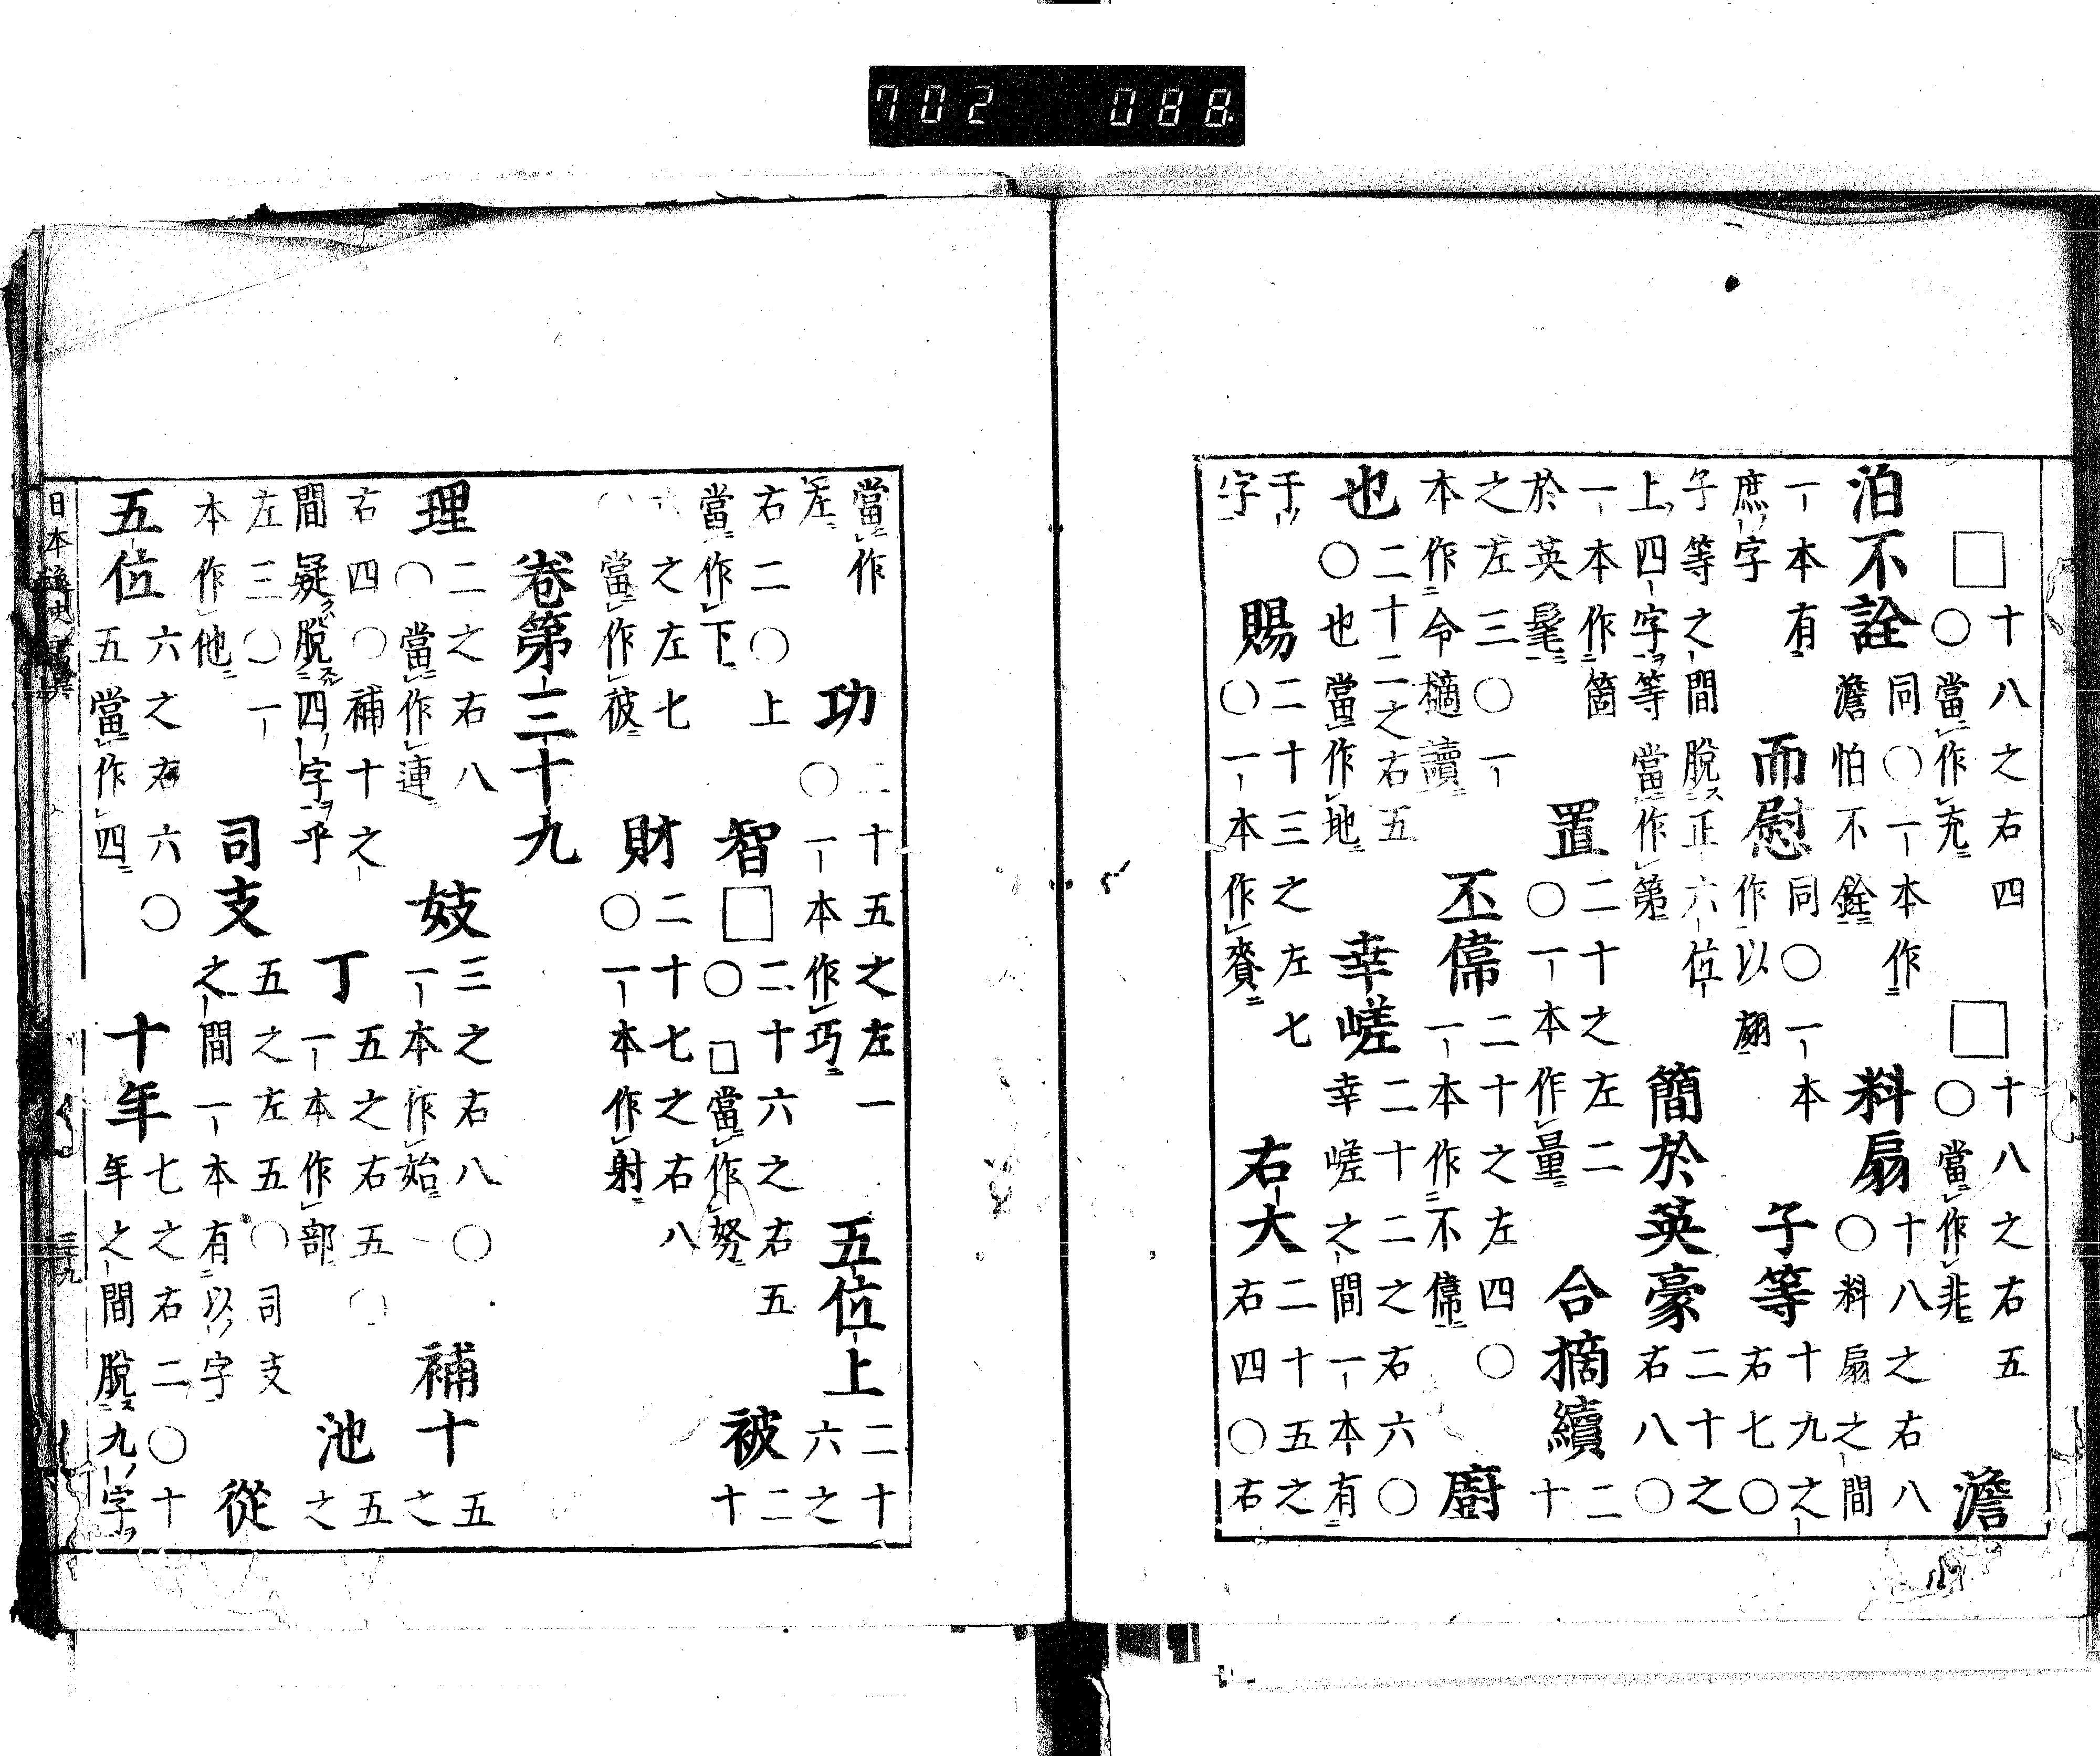 702 088
□十八之右四〇當作充 □十八之右五〇當作非 澹
泊不詮同〇一本作澹怕不銓 料扇十八之右八〇料扇之間
一本有庶字 而慰同〇一本作以慰 子等十九之右七〇
子等之間脫正六位上四字等當作第 簡於英豪二十之右八〇
一本作箇於英髦 置二十之左二〇一本作量 合摘續二十
之左三〇一本作令擿讀 丕偉二十之左四〇一本作不偉 廚
也二十二之右五〇也當作地 幸嗟二十二之右六〇幸嗟之間一本有
于字 賜二十三之左七〇一本作賚 右大二十五之右四〇右
當作左 功二十五之左一〇一本作巧 五位上二十六之
右二〇上當作下 智□二十六之右五〇□當作努 被二十
之左七〇當作彼 財二十七之右八〇一本作射
卷第三十九
理二之右八〇當作連 妓三之右八〇一本作始 補十五之
右四〇補十之間疑脫四字乎 丁五之右五〇一本作部 池五之
左三〇一本作他 司支五之左五〇司支之間一本有以字 從
五位六之右六〇五當作四 十年七之右二〇十年之間脫九字
日本逸史考異 三十九